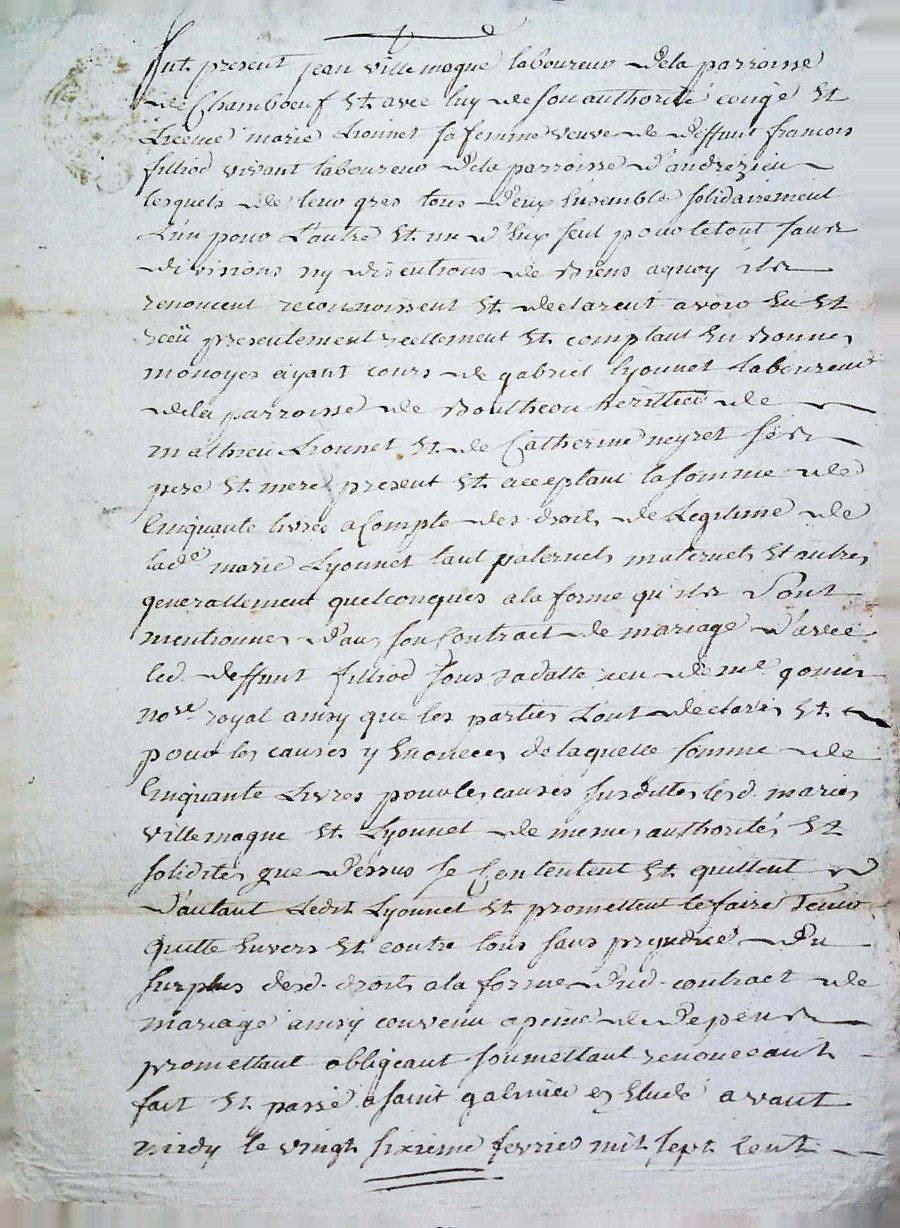 fut present jean villemagne laboureur dela parroisse
de Chamboeuf Et avec luy de son authorité congé Et
Licence marie Lionnet sa femme veuve de deffunt francois
filliod vivant laboureur dela parroisse d'andrezieu
lesquels de leur gres tous d'eux Ensemble solidairement
L'un pour l'autre Et un d'Eux seul pour le tout sans
divisions ny discutions de Biens aquoy ils
renoncent reconnoissent Et declarent avoir Eu Et
receü presentement reellement Et comptant En Bonnes
monoyes ayant cours de gabriel Lyonnet laboureur
dela parroisse de Boutheon heritier de
mathieu Lionnet Et de Catherine neyret ses
pere Et mere present Et acceptant la somme de
Cinquante livres a Compte des droits de Legitime de
lad.e marie Lyonnet tant paternels maternels Et autres
generallement quelconques a la forme qu'ils sont
mentionnes dans son Contract de mariage d'avec
led. deffunt filliod sous sa datte receu de m.e gonin
no.re royal ainsy que les parties l'ont declarés Et
pour les causes y Enoncees de laquelle somme de
Cinquante Livres pour les causes susdittes lesd. maries
villemagne Et Lyonnet de memes authorités Et
solidités que dessus se Contentent Et quittent
d'autant Ledit Lyonnet Et promettent le faire Tenir
quitte Envers Et contre tous sans prejudice du
surplus desd. droits a la forme dud. contract de
mariage ainsy convenu a peine de depens
promettant obligeant soumettant renonceant
fait Et passé a saint galmier Etude avant
midy le vingt sixieme fevrier mil sept Cent